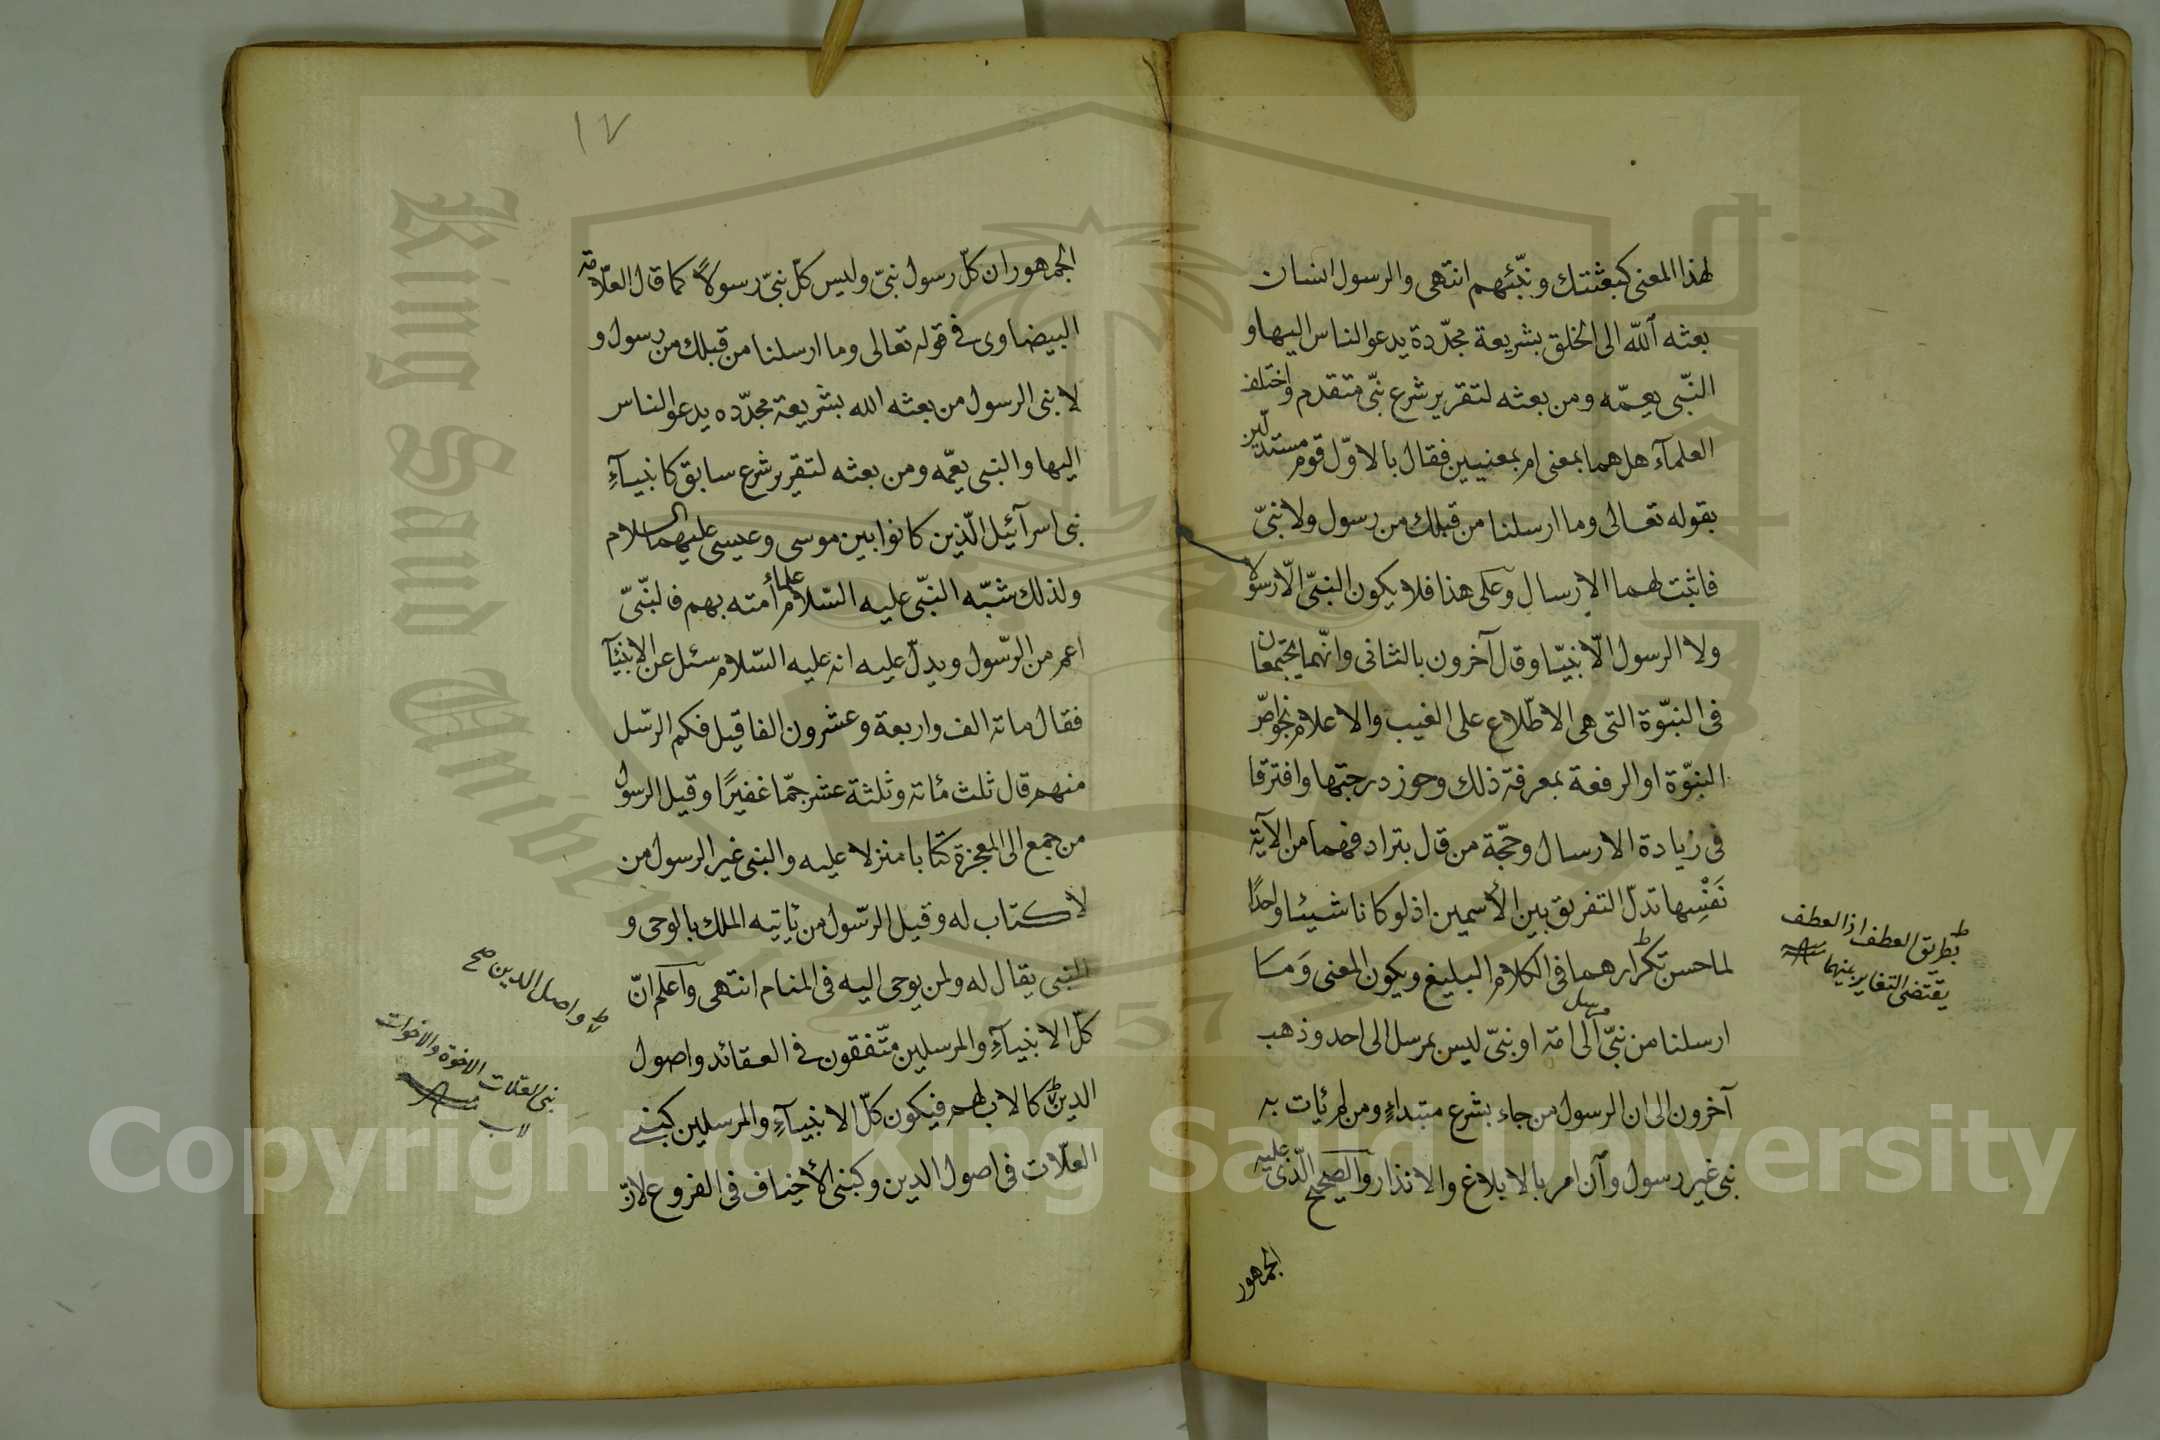 لهذا المعنى كبعثتك ونبّئهم انتهى والرسول انسان
بعثه الله الى الخلق بشريعة مجدّدة يدعو الناس اليها و
النّبى يعمّه ومن بعثه لتقرير شرع نبّى متقدم واختلف
العلمآء هل هما بمعنى ام بمعنيين فقال بالاوّل قوم مستدلّين
بقوله تعالى وما ارسلنا من قبلك من رسول ولا نبىّ
فاثبت لهما الارسال وعلى هذا فلا يكون النبىّ الّا رسولا
ولا الرسول الّا نبيّا وقال آخرون بالثانى وانّهما يجتمعان
فى النبّوة التى هى الاطّلاع على الغيب والاعلام بخواصّ
النبوّة او الرفعة بمعرفة ذلك وحوز درجتها وافترقا
فى زيادة الارسال وحجّة من قال بترادفهما من الآية
نَفْسِها تدلّ التفريق بين الأسمين اذ لو كانا شيئا واحدًا
لما حسن تكرارهما فى الكلام البليغ ويكون المعنى وَمَا
ارسلنا من نبىّ مرسل الى امّة او نبىّ ليس بمرسل الى احد وذهب
آخرون الى ان الرسول من جاء بشرع مبتداءٍ ومن لم يأت به
نبى غير رسول وآن امر بالابلاغ والانذار والصحيح الّذى عليه
الجمهور
بطريق العطف اذ العطف
يقتضى التغاير بينهما
١٧
الجمهور ان كلّ رسول نبىّ وليس كلّ نبىّ رسولاً كما قال العلّامة
البيضاوى فى قوله تعالى وما ارسلنا من قبلك من رسول و
لا نبى الرسول من بعثه الله بشريعة مجدّده يدعو الناس
اليها والنبى يعمّه ومن بعثه لتقرير شرع سابق كانبيآءِ
بنى اسرآئيل الّذين كانوا بين موسى وعيسى عليهما السلام
ولذلك شبّه النبّى عليه السّلام علماء أمته بهم فالنبّىّ
اعم من الرّسول ويدلّ عليه انه عليه السّلام سئل عن الانبيآ
فقال مائة الف واربعة وعشرون الفا قيل فكم الرسّل
منهم قال ثلث مائة وثلثة عشر جمّا غفيرًا وقيل الرسول
من جمع الى المعجزة كتابا منزلا عليه والنبى غير الرسول من
لا كتاب له وقيل الرّسول من يأتيه الملك بالوحى و
النبى يقال له ولمن يوحى اليه فى المنام انتهى وآعلم انّ
كلّ الانبيآءِ والمرسلين متّفقون فى العقائد واصول
الدين كالاب لهم فيكون كلّ الانبيآءِ والمرسلين كبنى
العلّات فى اصول الدين وكبنى الأخياف فى الفروع لانّ
واصل الدين صح
بنى العلات الاخوة والاخوات
لاب
Copyright © King Saud University
King Saud University
1957